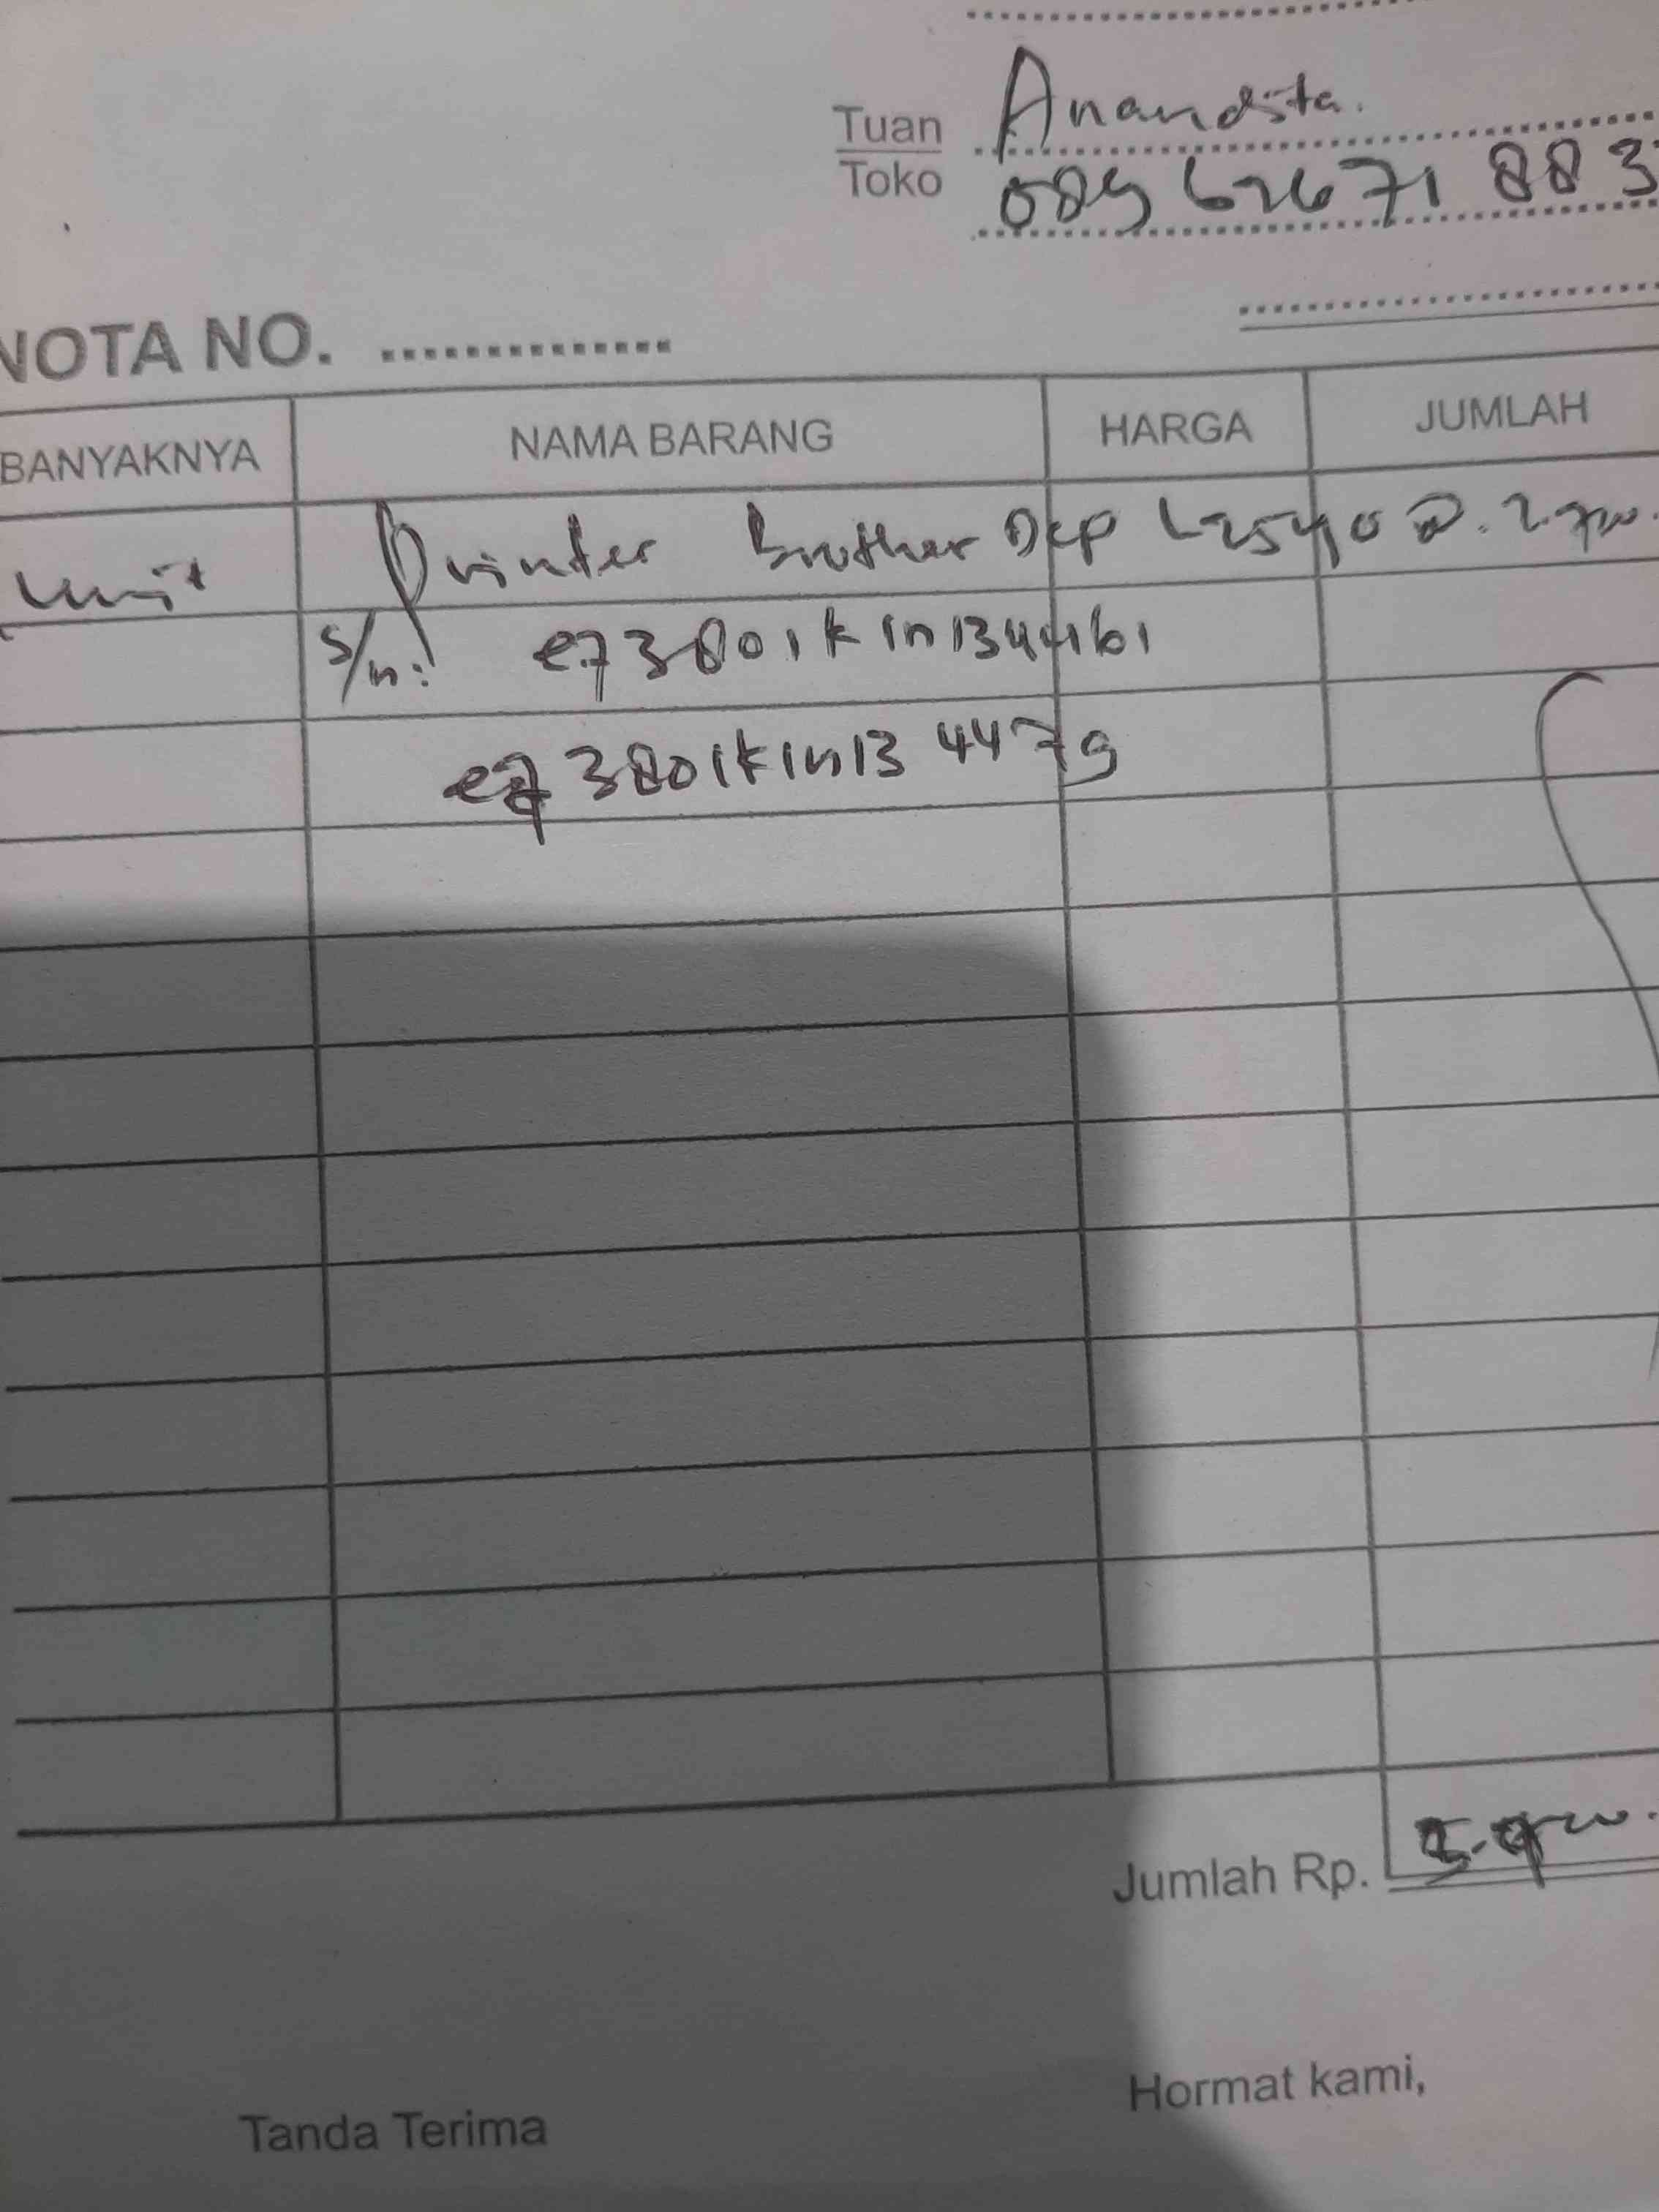 Tuan Anandita.
Toko 089 62671 883
NOTA NO. ..............
BANYAKNYA NAMA BARANG HARGA JUMLAH
unit Printer Brother Dcp L2540 @. 2.700.
S/n: e73801k1n134461
e73801k1n134479
Jumlah Rp.
Tanda Terima Hormat kami,